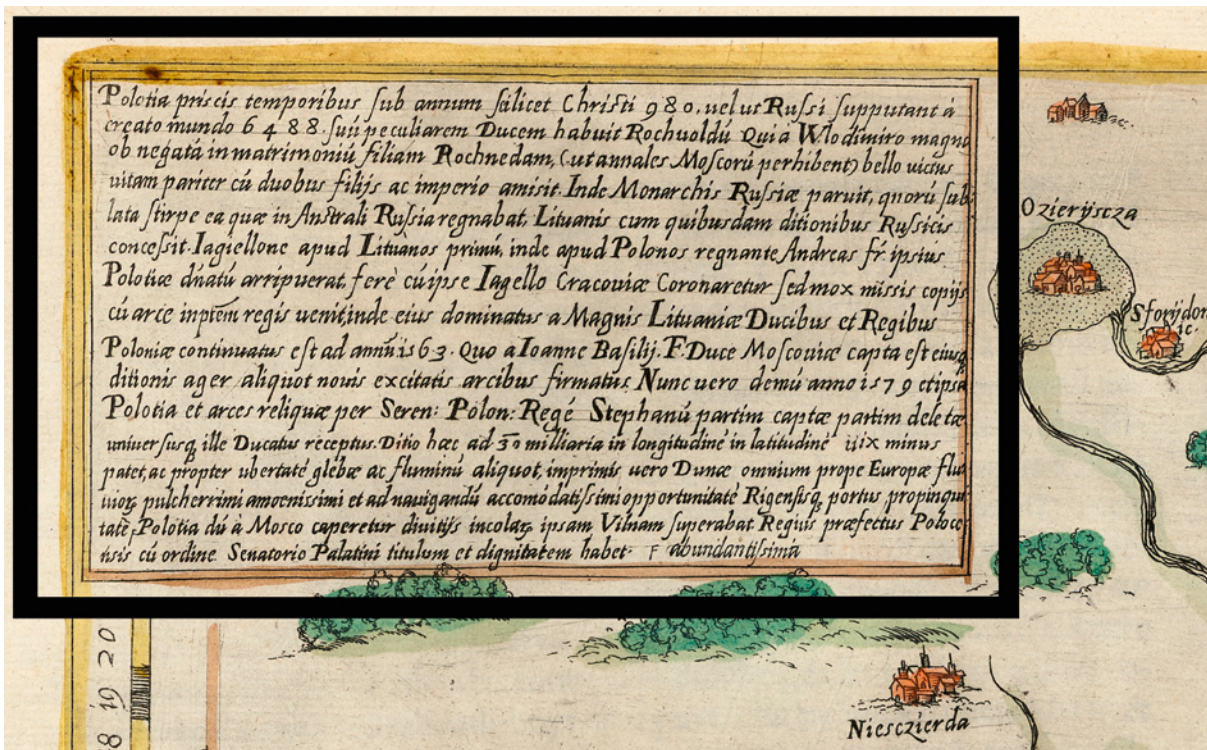 Polotia priscis temporibus sub annum scilicet Christi 980. uel ut Russi supputant à
creato mundo 6488. suū peculiarem Ducem habuit Rochuoldū Qui à Wlodimiro magno
ob negatā in matrimoniū filiam Rochnedam, (ut annales Moscorū perhibent) bello uictus
uitam pariter cū duobus filijs ac imperio amisit. Inde Monarchis Russiæ paruit, quorū sub
lata stirpe ea quæ in Australi Russia regnabat, Lituanis cum quibusdam ditionibus Russicis
concessit. Iagiellone apud Lituanos primū, inde apud Polonos regnante Andreas fr̄ ipsius
Polotiæ dn̄atū arripuerat, ferè cū ipse Iagello Cracouiæ Coronaretur sed mox missis copijs
cū arce in ptēm regis uenit, inde eius dominatus a Magnis Lituaniæ Ducibus et Regibus
Poloniæ continuatus est ad annū 1563. Quo a Ioanne Basilij. F. Duce Moscouiæ capta est eiusq̨
ditionis ager aliquot nouis excitatis arcibus firmatus. Nunc uero demū anno 1579 et ipsa
Polotia et arces reliquæ per Seren: Polon: Regē Stephanū partim captæ partim deletæ
uniuersusq̨ ille Ducatus receptus. Ditio hæc ad 30 milliaria in longitudinē in latitudinē iiix minus
patet, ac propter ubertatē glebæ ac fluminū aliquot, imprimis uero Dunæ omnium prope Europæ flu
uiorꝝ pulcherrimi amoenissimi et ad nauigandū accomodatissimi opportunitatē Rigensisq̨ portus propinqui
tatē, Polotia dū à Mosco caperetur diuitijs incolarꝝ ipsam Vilnam superabat Regius præfectus Poloce
nsis cū ordine Senatorio Palatini titulum et dignitatem habet. F abundantissima
Ozierijscza
Sforijdon
ic.
20
19
18
Niesczierda